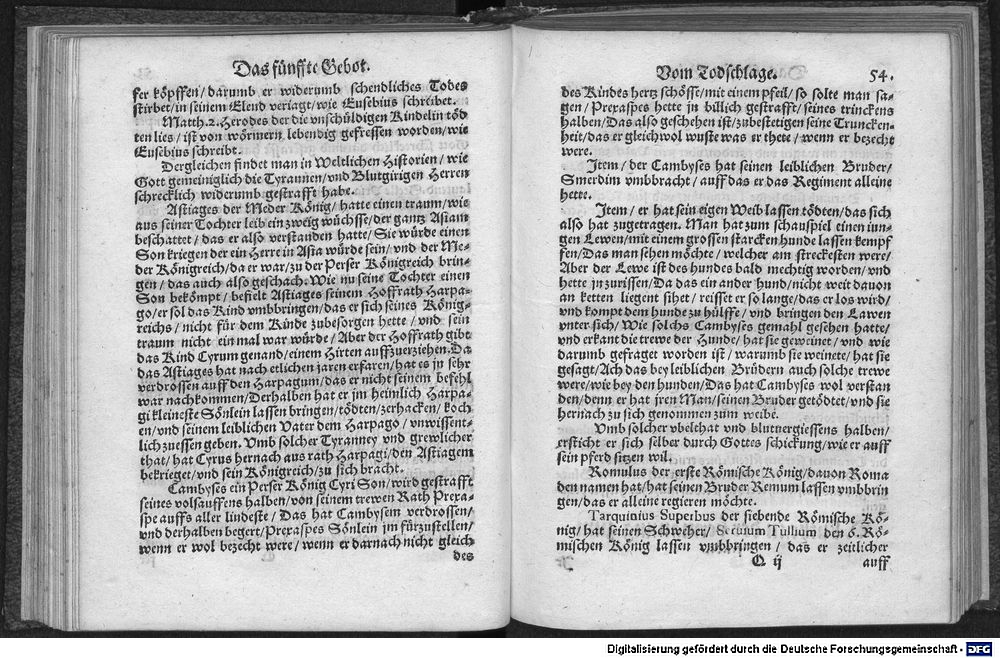 Das fünffte Gebot.
ser köpffen/ darumb er widerumb schendliches Todes
stirbet/ in seinem Elend veriagt/ wie Eusebius schreibet.
Matth. 2. Herodes der die vnschüldigen Kindelin töd
ten lies/ ist von wörmern lebendig gefressen worden/ wie
Eusebius schreibt.
Dergleichen findet man in Weltlichen Historien/ wie
Gott gemeiniglich die Tyrannen/ vnd Blutgirigen Herren
schrecklich widerumb gestrafft habe.
Astiages der Meder König/ hatte einen traum/ wie
aus seiner Tochter leib ein zweig wüchsse/ der gantz Asiam
beschattet/ das er also verstanden hatte/ Sie würde einen
Son kriegen der ein Herre in Asia würde sein/ vnd der Me-
der Königreich/ da er war/ zu der Perser Königreich brin-
gen/ das auch also geschach. Wie nu seine Tochter einen
Son bekömpt/ befielt Astiages seinem Hoffrath Harpa-
go/ er sol das Kind vmbbringen/ das er sich seines König-
reichs/ nicht für dem Kinde zubesorgen hette/ vnd sein
traum nicht ein mal war würde/ Aber der Hoffrath gibt
das Kind Cyrum genand/ einem Hirten auffzuerziehen. Da
das Astiages hat nach etlichen jaren erfaren/ hat es jn sehr
verdrossen auff den Harpagum/ das er nicht seinem befehl
war nachkommen/ Derhalben hat er jm heimlich Harpa-
gi kleineste Sönlein lassen bringen/ tödten/ zerhacken/ koch
en/ vnd seinem leiblichen Vater dem Harpago/ vnwissent-
lich zuessen geben. Vmb solcher Tyranney vnd grewlicher
that/ hat Cyrus hernach aus rath Harpagi/ den Astiagem
bekrieget/ vnd sein Königreich/ zu sich bracht.
Cambyses ein Perser König Cyri Son/ wird gestrafft
seines volsauffens halben/ von seinem trewen Rath Prexa-
spe auffs aller lindeste/ Das hat Cambysem verdrossen/
vnd derhalben begert/ Prexaspes Sönlein jm fürzustellen/
wenn er wol bezecht were/ wenn er darnach nicht gleich
des
Vom Todschlage. 54.
des Kindes hertz schösse/ mit einem pfeil/ so solte man sa-
gen/ Prexaspes hette jn billich gestrafft/ seines trinckens
halben/ Das also geschehen ist/ zubestetigen seine Truncken-
heit/ das er gleichwol wuste was er thete/ wenn er bezecht
were.
Item/ der Cambyses hat seinen leiblichen Bruder/
Smerdim vmbbracht/ auff das er das Regiment alleine
hette.
Item/ er hat sein eigen Weib lassen tödten/ das sich
also hat zugetragen. Man hat zum schauspiel einen iun-
gen Lewen/ mit einem grossen starcken hunde lassen kempf
fen/ Das man sehen möchte/ welcher am streckesten were/
Aber der Lewe ist des hundes bald mechtig worden/ vnd
hette jn zurissen/ Da das ein ander hund/ nicht weit dauon
an ketten liegent sihet/ reisset er so lange/ das er los wird/
vnd kompt dem hunde zu hülffe/ vnd bringen den Lawen
vnter sich/ Wie solchs Cambyses gemahl gesehen hatte/
vnd erkant die trewe der Hunde/ hat sie geweinet/ vnd wie
darumb gefraget worden ist/ warumb sie weinete/ hat sie
gesagt/ Ach das bey leiblichen Brüdern auch solche trewe
were/ wie bey den hunden/ Das hat Cambyses wol verstan
den/ denn er hat jren Man/ seinen Bruder getödtet/ vnd sie
hernach zu sich genommen zum weibe.
Vmb solcher vbelthat vnd blutuergiessens halben/
ersticht er sich selber durch Gottes schickung/ wie er auff
sein pferd sitzen wil.
Romulus der erste Römische König/ dauon Roma
den namen hat/ hat seinen Bruder Remum lassen vmbbrin
gen/ das er alleine regieren möchte.
Tarquinius Superbus der siebende Römische Kö-
nig/ hat seinen Schweher/ Seruium Tullium den 6. Rö-
mischen König lassen vmbbringen/ das er zeitlicher
O ij auff
Digitalisierung gefördert durch die Deutsche Forschungsgemeinschaft - DFG